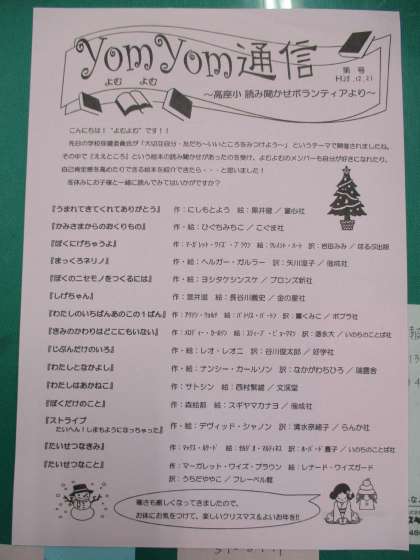 YomYom通信
よむ よむ
第 号
H28.12.21
～高座小 読み聞かせボランティアより～
こんにちは！ "よむよむ" です！！
先日の学校保健委員会が「大切な自分・友だち～いいところをみつけよう～」というテーマで開催されましたね。
その中で『ええところ』という絵本の読み聞かせがあったのを受け、よむよむのメンバーも自分が好きになれたり、
自己肯定感を高めたりできる絵本を紹介できたら・・・と思いました！
冬休みにお子様と一緒に読んでみてはいかがですか？
『うまれてきてくれてありがとう』 作：にしもとよう 絵：黒井健 ／ 童心社
『かみさまからのおくりもの』 作・絵：ひぐちみちこ ／ こぐま社
『ぼくにげちゃうよ』 文：マーガレット・ワイズ・ブラウン 絵：クレメント・ハード 訳：岩田みみ ／ ほるぷ出版
『まっくろネリノ』 作・絵：ヘルガー・ガルラー 訳：矢川澄子 ／ 偕成社
『ぼくのニセモノをつくるには』 作・絵：ヨシタケシンスケ ／ ブロンズ新社
『しげちゃん』 作：室井滋 絵：長谷川義史 ／ 金の星社
『わたしのいちばんあのこの１ばん』 作：アリソン・ウォルチ 絵：パトリス・バートン 訳：薫くみこ ／ ポプラ社
『きみのかわりはどこにもいない』 作：メロディー・カールソン 絵：スティーブ・ビョークマン 訳：徳永大 ／ いのちのことば社
『じぶんだけのいろ』 作・絵：レオ・レオニ 訳：谷川俊太郎 ／ 好学社
『わたしとなかよし』 作・絵：ナンシー・カールソン 訳：なかがわちひろ ／ 瑞雲舎
『わたしはあかねこ』 作：サトシン 絵：西村敏雄 ／ 文溪堂
『ぼくだけのこと』 作：森絵都 絵：スギヤマカナヨ ／ 偕成社
『ストライプ
たいへん！しまもようになっちゃった』 作・絵：デヴィッド・シャノン 訳：清水奈緒子 ／ らんか社
『たいせつなきみ』 作：マックス・ルケード 絵：セルジオ・マルティネス 訳：ホーバード・豊子 ／ いのちのことば社
『たいせつなこと』 作：マーガレット・ワイズ・ブラウン 絵：レナード・ワイズガード
訳：うちだややこ ／ フレーベル館
寒さも厳しくなってきましたので、
お体にお気をつけて、楽しいクリスマス＆よいお年を!!